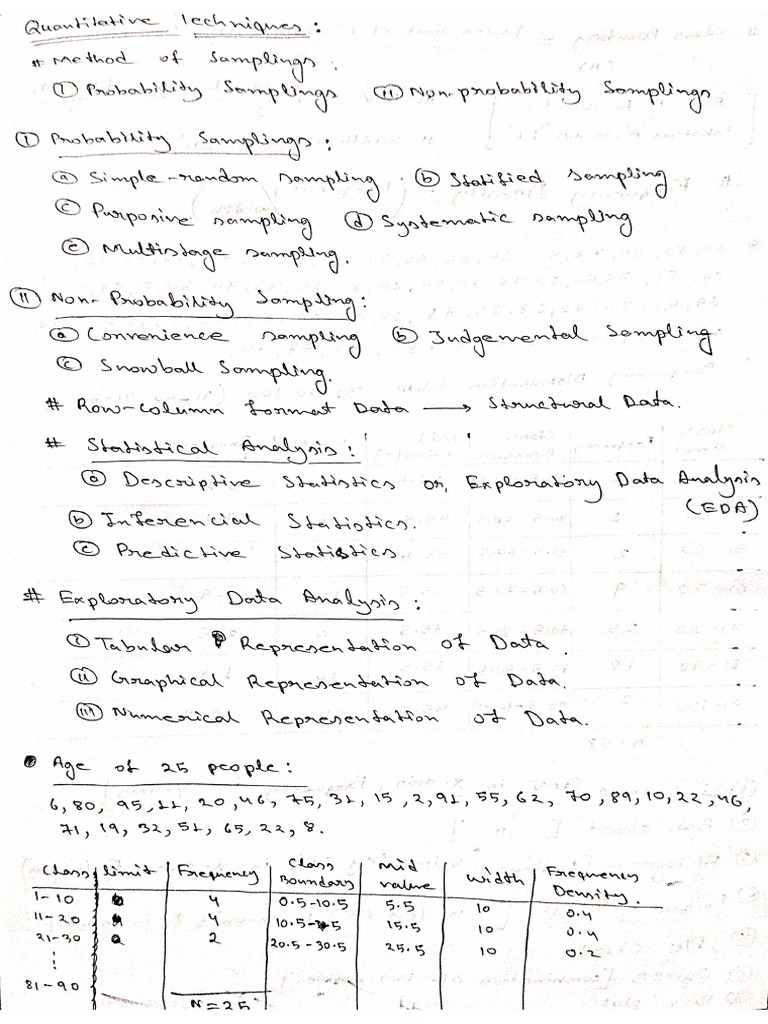 Quantitative Techniques:
# Method of Samplings:
(i) Probability Samplings (ii) Non-probability Samplings
(i) Probability Samplings:
(a) Simple-random sampling (b) Statified sampling
(c) Purposive sampling (d) Systematic sampling
(e) Multistage sampling.
(ii) Non-Probability Sampling:
(a) Convenience sampling (b) Judgemental Sampling
(c) Snowball Sampling.
# Row-column format Data → Structural Data.
# Statistical Analysis:
(a) Descriptive Statistics or, Exploratory Data Analysis
(EDA)
(b) Inferencial Statistics.
(c) Predictive Statistics.
# Exploratory Data Analysis:
(i) Tabular Representation of Data.
(ii) Graphical Representation of Data.
(iii) Numerical Representation of Data.
• Age of 25 people:
6, 80, 95, 11, 20, 46, 75, 31, 15, 2, 91, 55, 62, 70, 89, 10, 22, 46,
71, 19, 32, 51, 65, 22, 8.
Class limit Frequency Class Boundary Mid value width Frequency Density.
1-10 4 0.5-10.5 5.5 10 0.4
11-20 4 10.5- 15.5 10 0.4
21-30 2 20.5-30.5 25.5 10 0.2
⋮
81-90
N=25